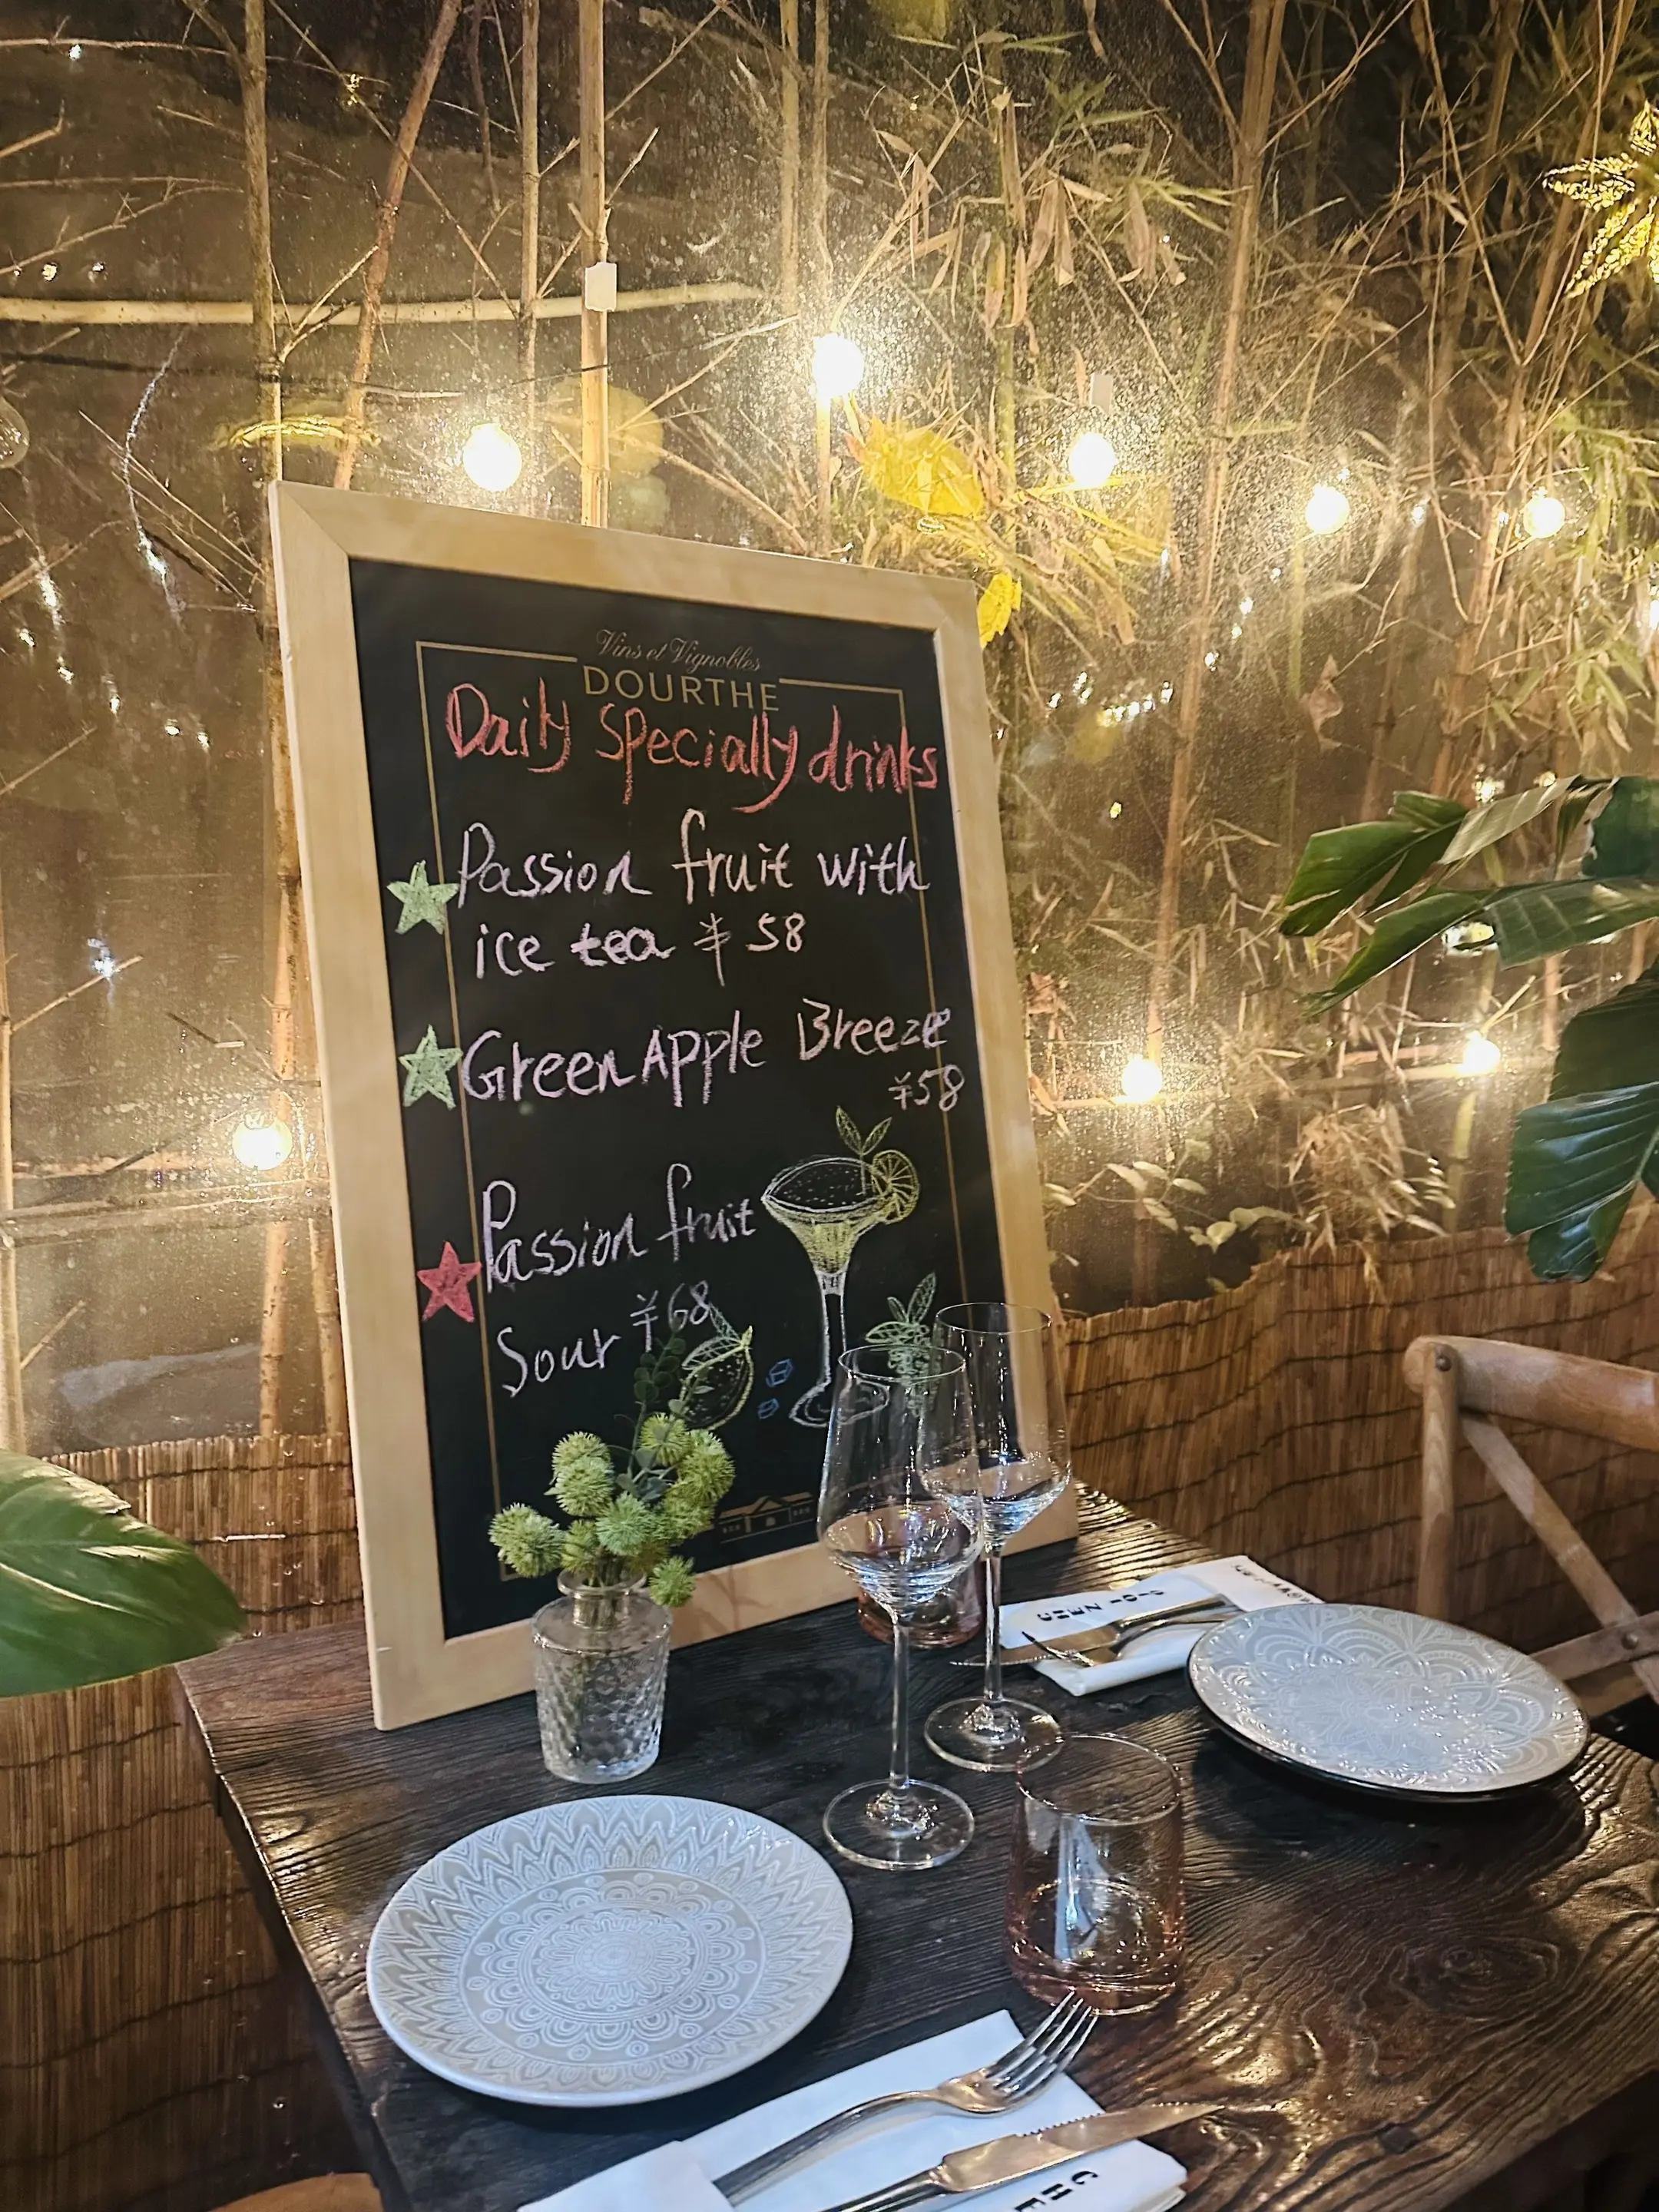 Vins et Vignobles
DOURTHE
Daily Specially drinks
Passion fruit with
ice tea ¥ 58
Green Apple Breeze
¥58
Passion fruit
Sour ¥68
CHE